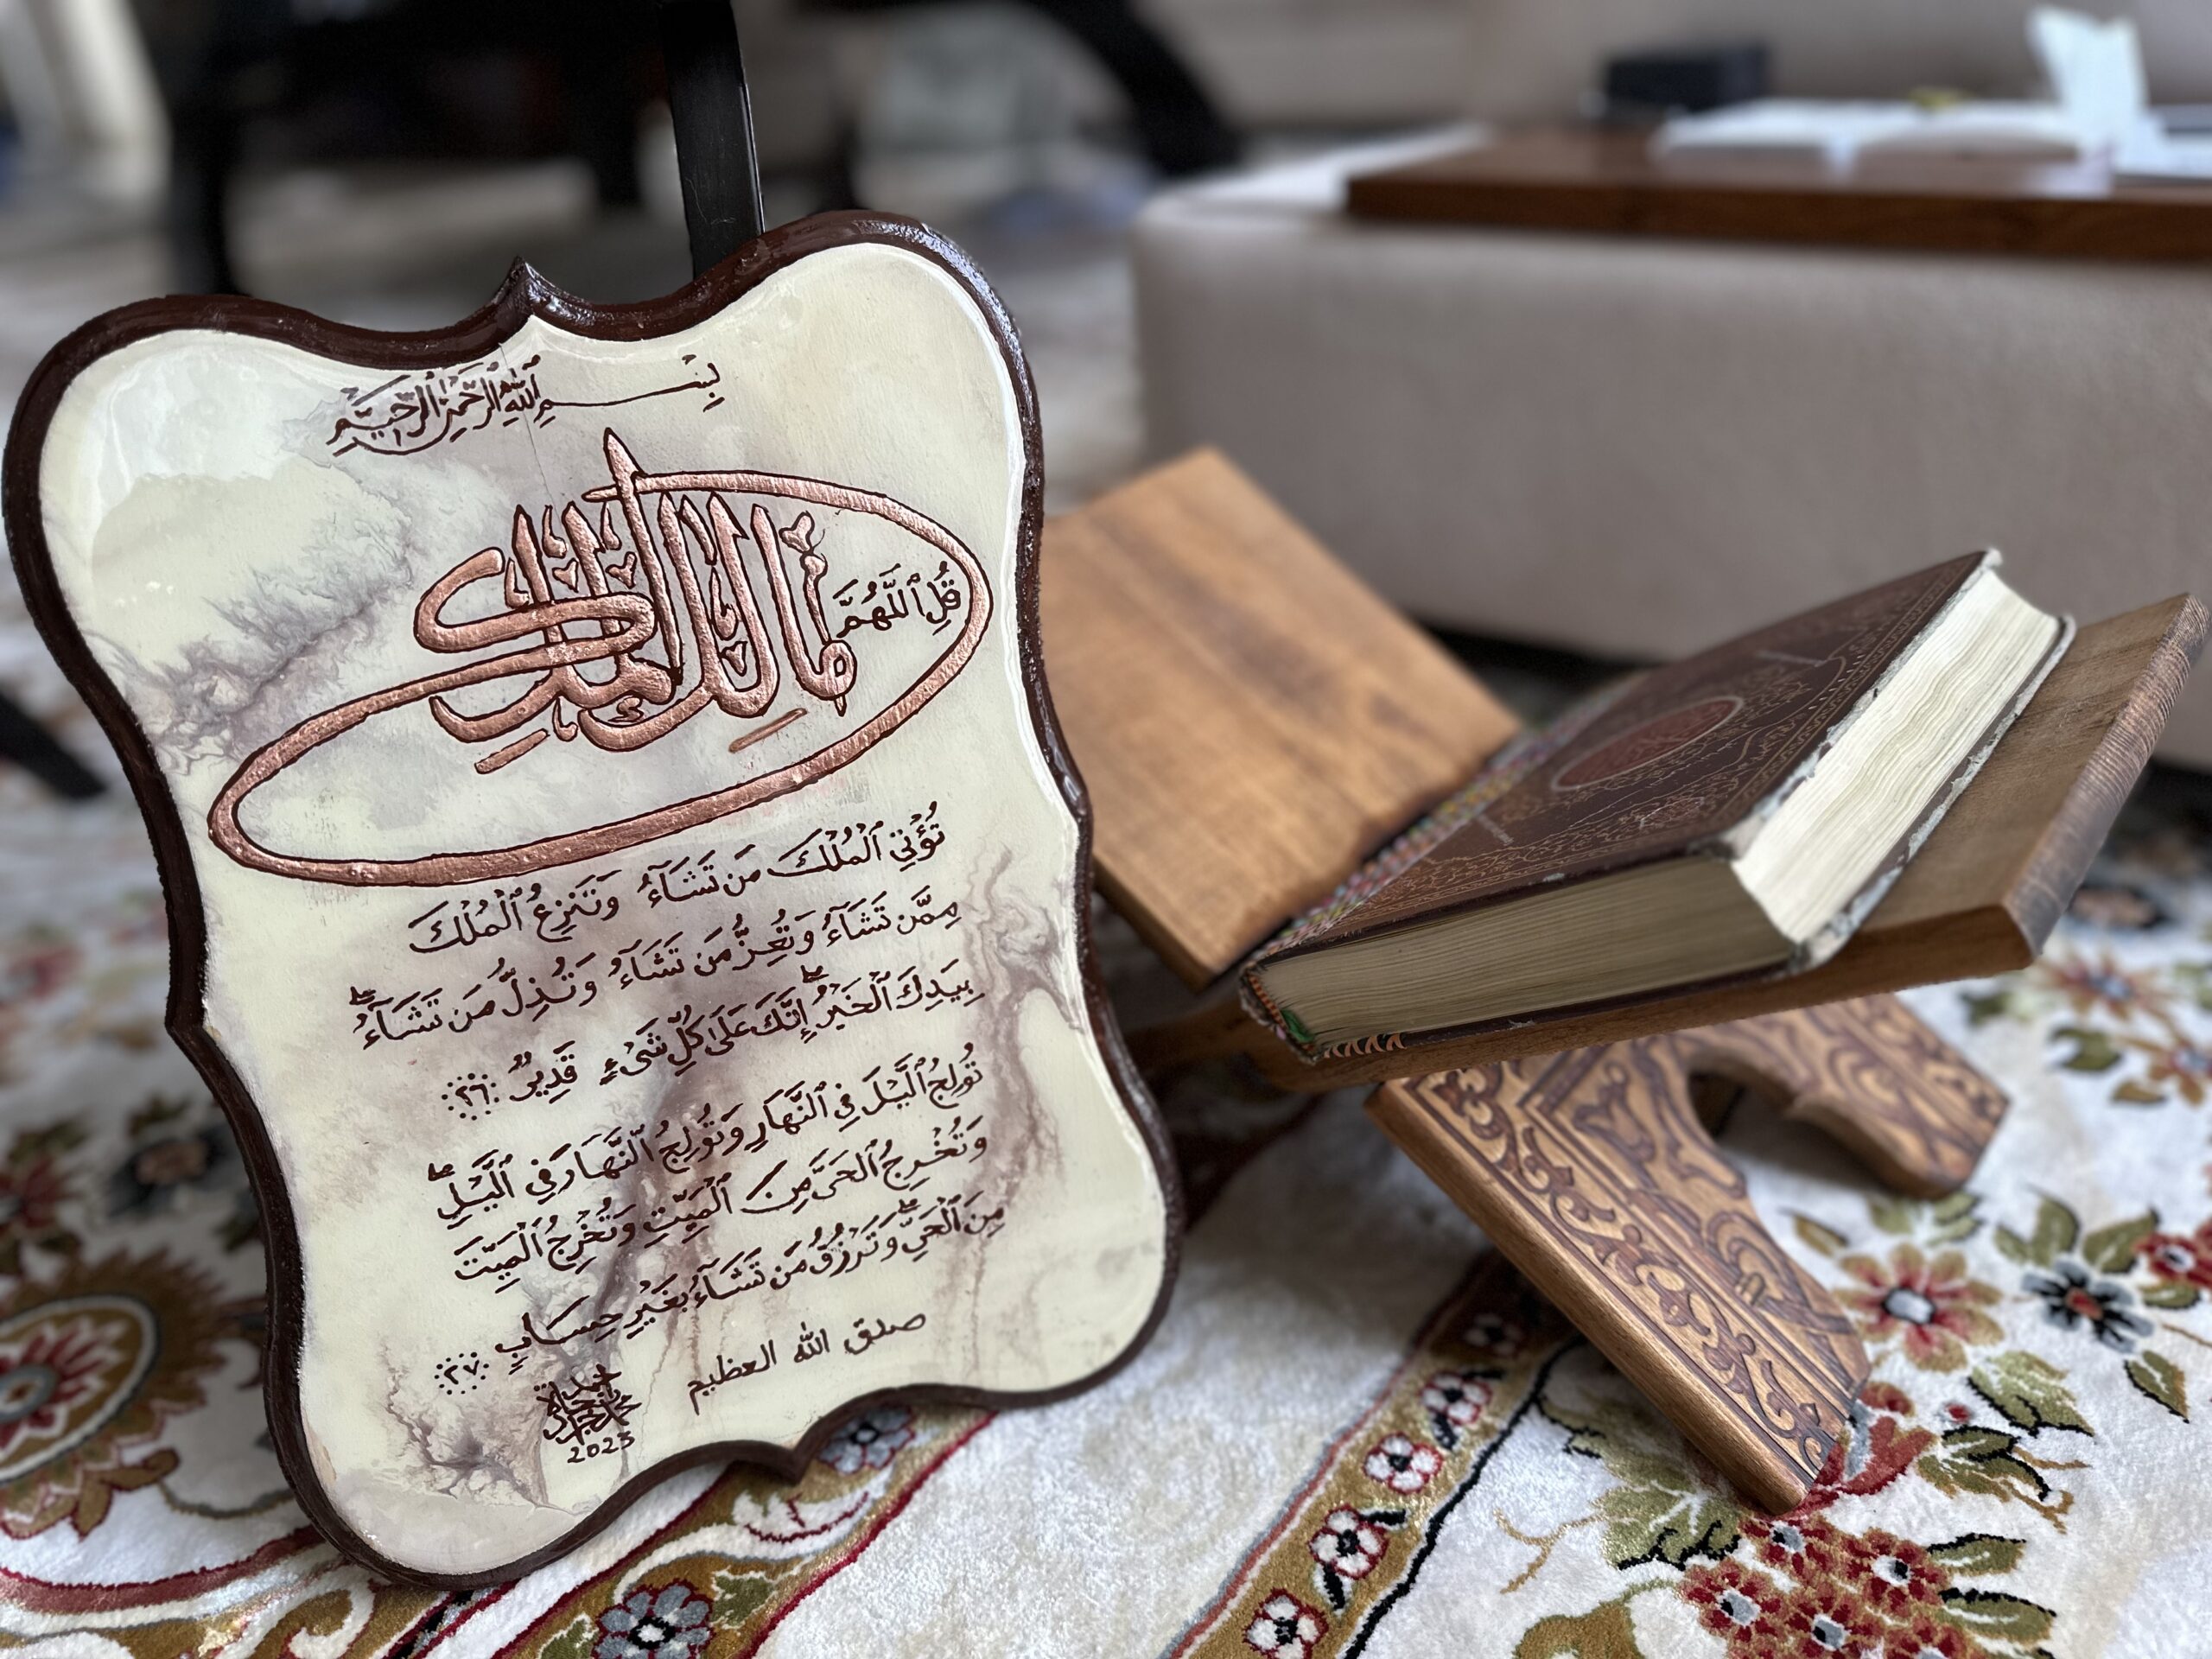 بِسْمِ ٱللَّهِ ٱلرَّحْمَٰنِ ٱلرَّحِيمِ
قُلِ ٱللَّهُمَّ مَالِكَ ٱلْمُلْكِ
تُؤْتِي ٱلْمُلْكَ مَن تَشَآءُ وَتَنزِعُ ٱلْمُلْكَ
مِمَّن تَشَآءُ وَتُعِزُّ مَن تَشَآءُ وَتُذِلُّ مَن تَشَآءُۖ
بِيَدِكَ ٱلْخَيْرُۖ إِنَّكَ عَلَىٰ كُلِّ شَىْءٍ قَدِيرٌ ٢٦
تُولِجُ ٱلَّيْلَ فِي ٱلنَّهَارِ وَتُولِجُ ٱلنَّهَارَ فِي ٱلَّيْلِۖ
وَتُخْرِجُ ٱلْحَيَّ مِنَ ٱلْمَيِّتِ وَتُخْرِجُ ٱلْمَيِّتَ
مِنَ ٱلْحَيِّۖ وَتَرْزُقُ مَن تَشَآءُ بِغَيْرِ حِسَابٍ ٢٧
صدق الله العظيم
2023